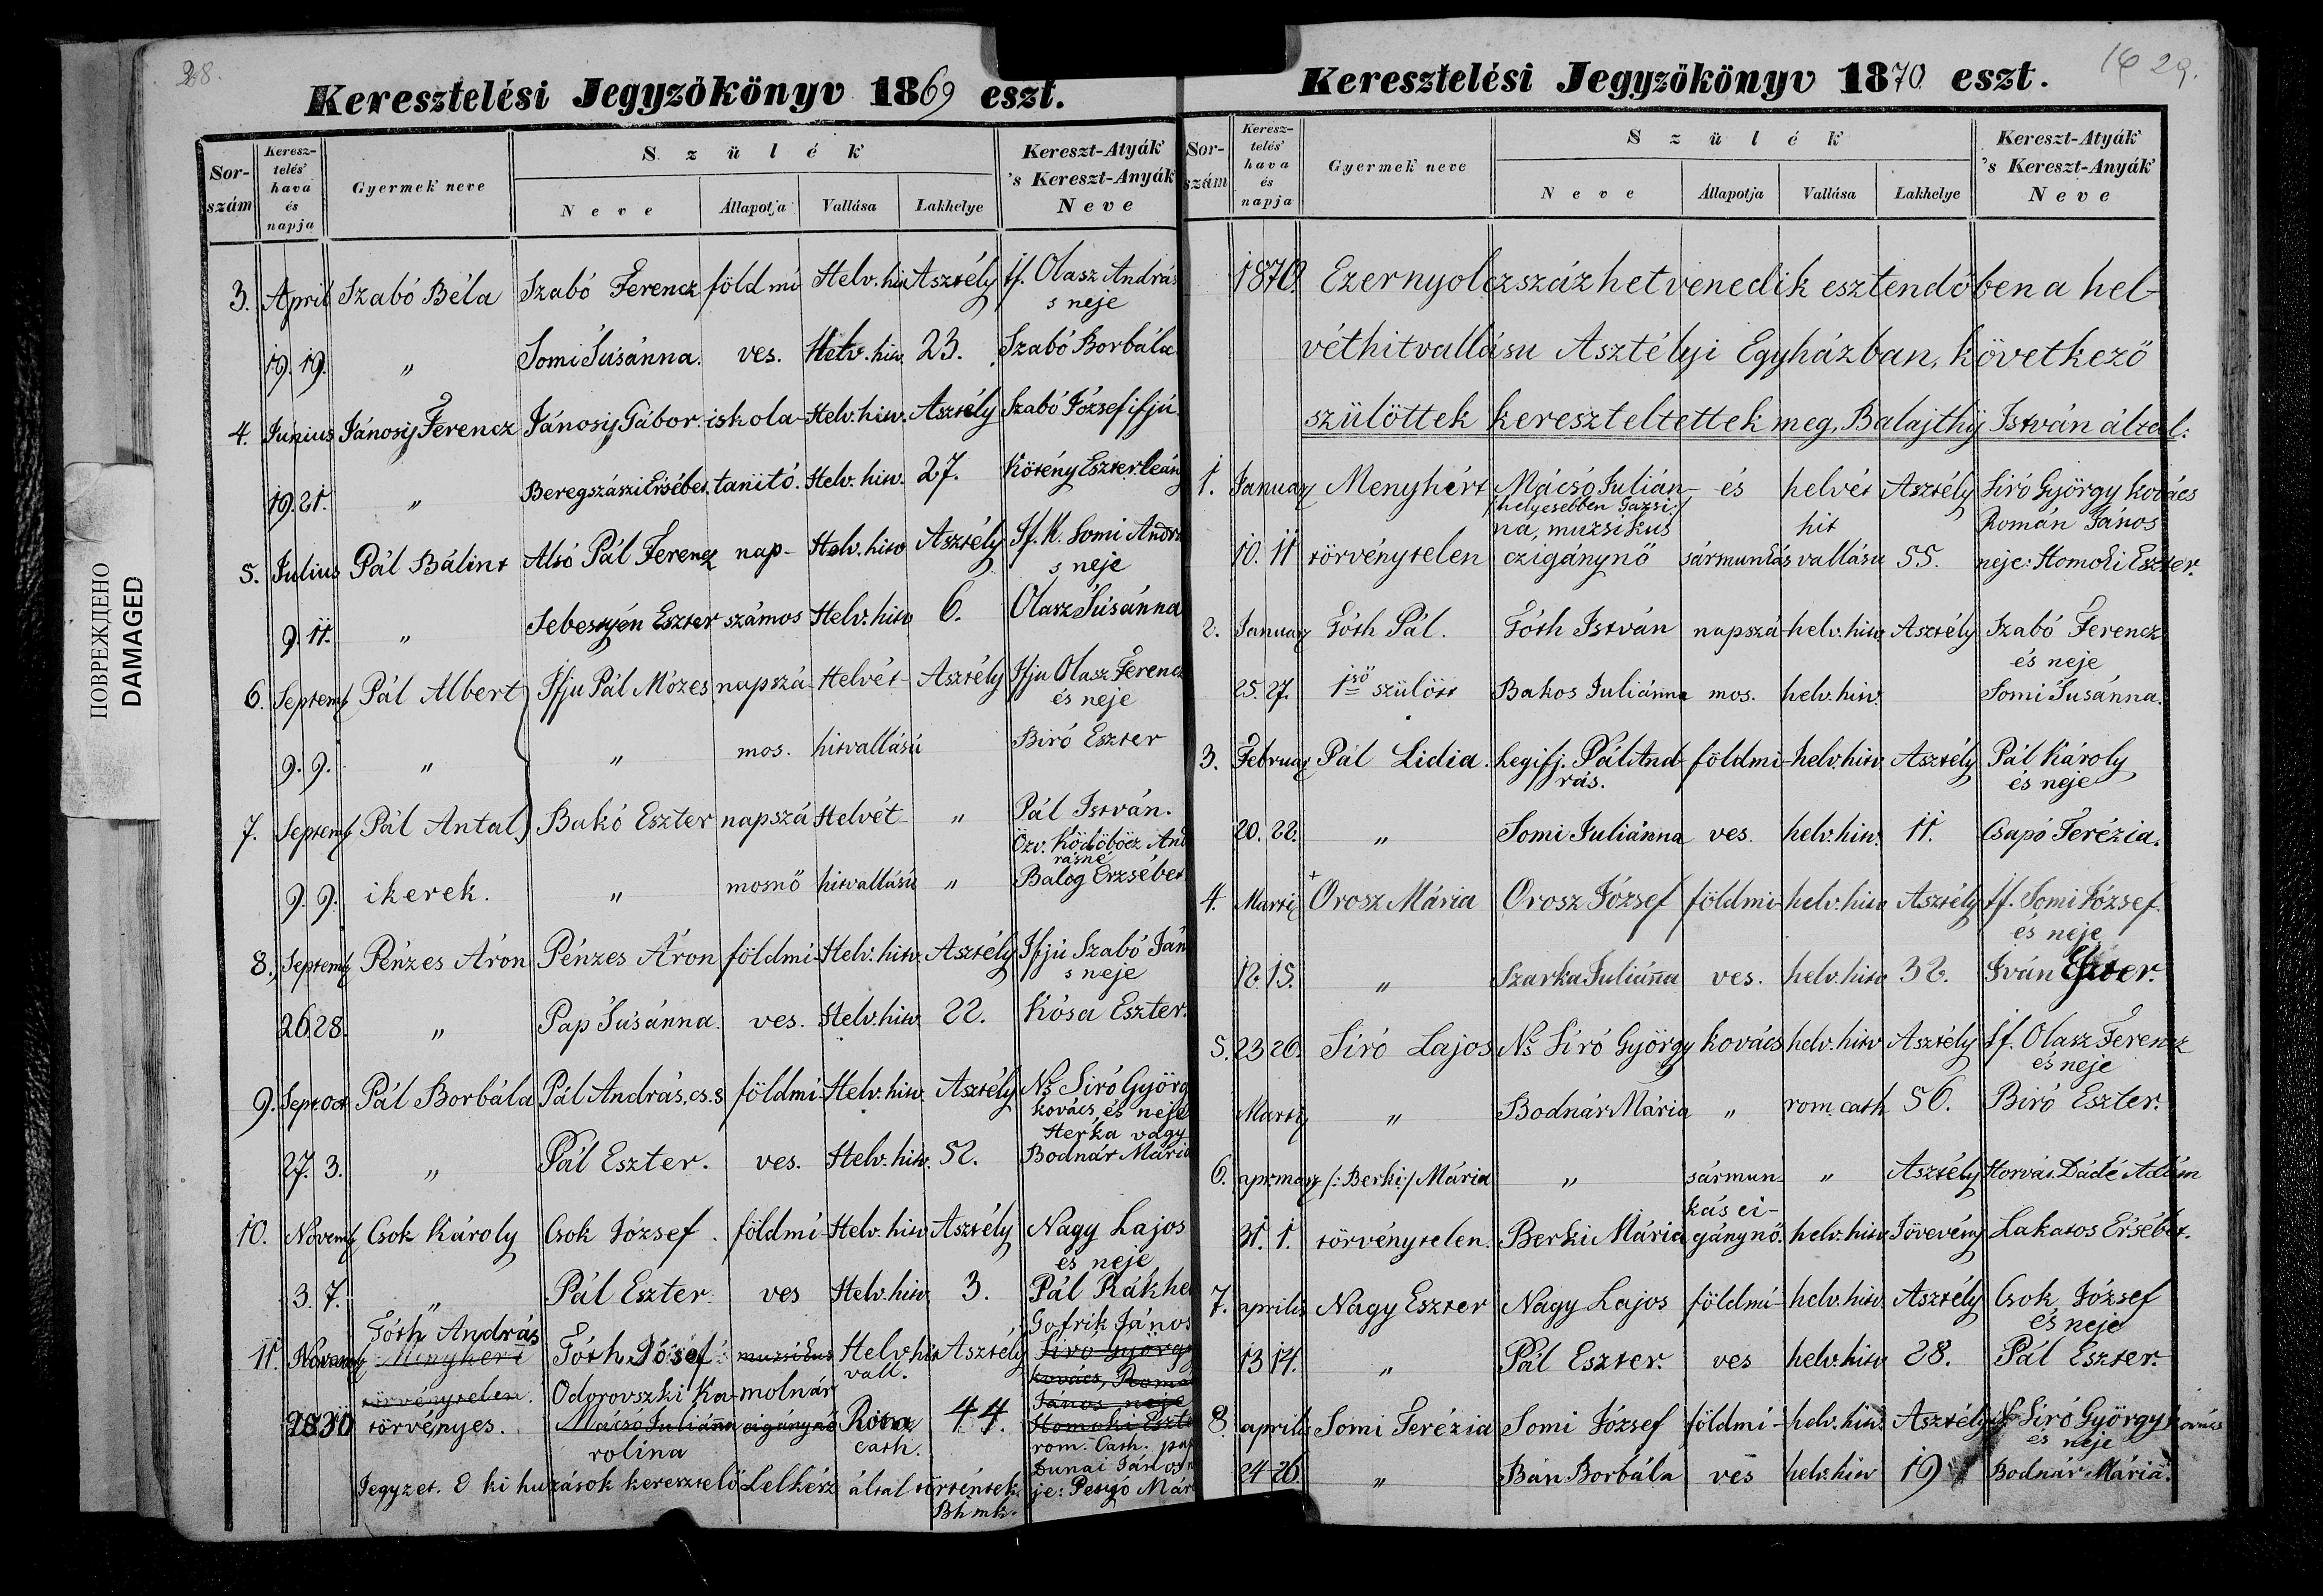 28.
Keresztelési Jegyzőkönyv 1869 eszt.
Sor-szám Keresz-telés' hava és napja Gyermek' neve Szülék Kereszt-Atyák 's Kereszt-Anyák Neve
Neve Állapotja Vallása Lakhelye
3. April Szabó Béla Szabó Ferencz föld mí Helv. hit Asztély If. Olasz András
s neje
19. 19. " Somi Susánna. ves. Helv. hitv. 23. Szabó Borbála
4. Június Jánosy Ferencz Jánosy Gábor iskola- Helv. hitv. Asztély Szabó József ifjú
19. 21. " Beregszászi Ersébet. tanító. Helv. hitv. 27. Kötény Eszter leán
5. Julius Pál Bálint Alsó Pál Ferencz nap- Helv. hitv Asztély If. K. Somi Andr
s neje
9. 11. " Sebestyén Eszter számos Helv. hitv 6. Olasz Susánna
6. Septemb Pál Albert Ifju Pál Mózes napszá- Helvét- Asztély Ifju Olasz Ferencz
és neje
9. 9. " " mos. hitvallású Biró Eszter
7. Septemb Pál Antal Bakó Eszter napszá Helvét- " Pál István.
Özv. Ködöböcz And
rásné
9. 9. ikerek. " mosnő hitvallású " Balog Erzsébet
8. Septemb Pénzes Áron Pénzes Áron földmí- Helv. hitv. Asztély Ifjú Szabó Ján
s neje
26. 28. " Pap Susánna. ves. Helv. hitv. 22. Kósa Eszter.
9. Sept. Oct Pál Borbála Pál András, cs. s földmí- Helv. hitv. Asztély Ns Siró György
kovács, és neje
Herka vagy
27. 3. " Pál Eszter. ves. Helv. hitv. 52. Bodnár Mária
10. Novemb Csok Károly Csok József. földmí- Helv. hitv Asztély Nagy Lajos
és neje
3. 7. " Pál Eszter. ves Helv. hitv. 3. Pál Rákhel
Tóth András Gofrik János
11. Novemb Menyhért Tóth Jósef muzsikus Helv. hit Asztély Siró György
vall. kovács, Román
törvénytelen. Odorovszki Ka- molnár János neje
30 törvényes. Mácsó Juliánna cigánynő Róma 44. Homoki Eszte
rolina cath. rom. Cath. pap
Dunai János n
Jegyzet. E ki huzások keresztelő Lelkész által történtek. je: Pesgó Már
Bh mk.
16 29.
Keresztelési Jegyzőkönyv 1870 eszt.
Sor-szám Keresz-telés' hava és napja Gyermek' neve Szülék Kereszt-Atyák 's Kereszt-Anyák Neve
Neve Állapotja Vallása Lakhelye
1870. Ezernyolczszázhetvenedik esztendőben a hel-
véthitvallásu Asztélyi Egyházban, következő
szülöttek kereszteltettek meg, Balajthy István által:
1. Január Menyhért Mácsó Julián- és helvét Asztély Siró György kovács
/helyesebben Gazsi/
na, muzsikus hit Román János
10. 11 törvénytelen czigánynő sármunkás vallásu 55. neje: Homoki Eszter.
2. Január Tóth Pál. Tóth István napszá- helv. hitv. Asztély Szabó Ferencz
és neje
25. 27. 1ső szülött Bakos Juliánna mos. helv. hitv. Somi Susánna.
3. Február Pál Lidia. hegi fj. Pál And- földmi- helv. hitv. Asztély Pál Károly
rás. és neje
20. 22. " Somi Juliánna ves. helv. hitv. 11. Csapó Terézia.
4. Marti + Orosz Mária Orosz József földmi- helv. hitv Asztély If. Somi József
és neje
12. 15. " Szarka Juliánna ves. helv. hitv 32. Iván Eszter.
5. 23 26. Siró Lajos Ns Siró György kovács helv. hitv Asztély If. Olasz Ferencz
és neje
Marty " Bodnár Mária " rom. cath 56. Biró Eszter.
6. /:Berki:/ Mária " sármun- " Asztély Horvát Dádé Ádám
kás ci-
31. 1. törvénytelen. Berki Mária gánynő. helv. hitv. Jövevény Lakatos Ersébet.
7. aprilis Nagy Eszter Nagy Lajos földmí- helv. hitv. Asztély Csok József
és neje
13 14. " Pál Eszter. ves helv. hitv 28. Pál Eszter.
8. aprilis Somi Terézia Somi József földmí- helv. hitv. Asztély Ns Siró György kovács
és neje
24 26. " Bán Borbála ves helv. hitv 19 Bodnár Mária.
ПОВРЕЖДЕНО
DAMAGED